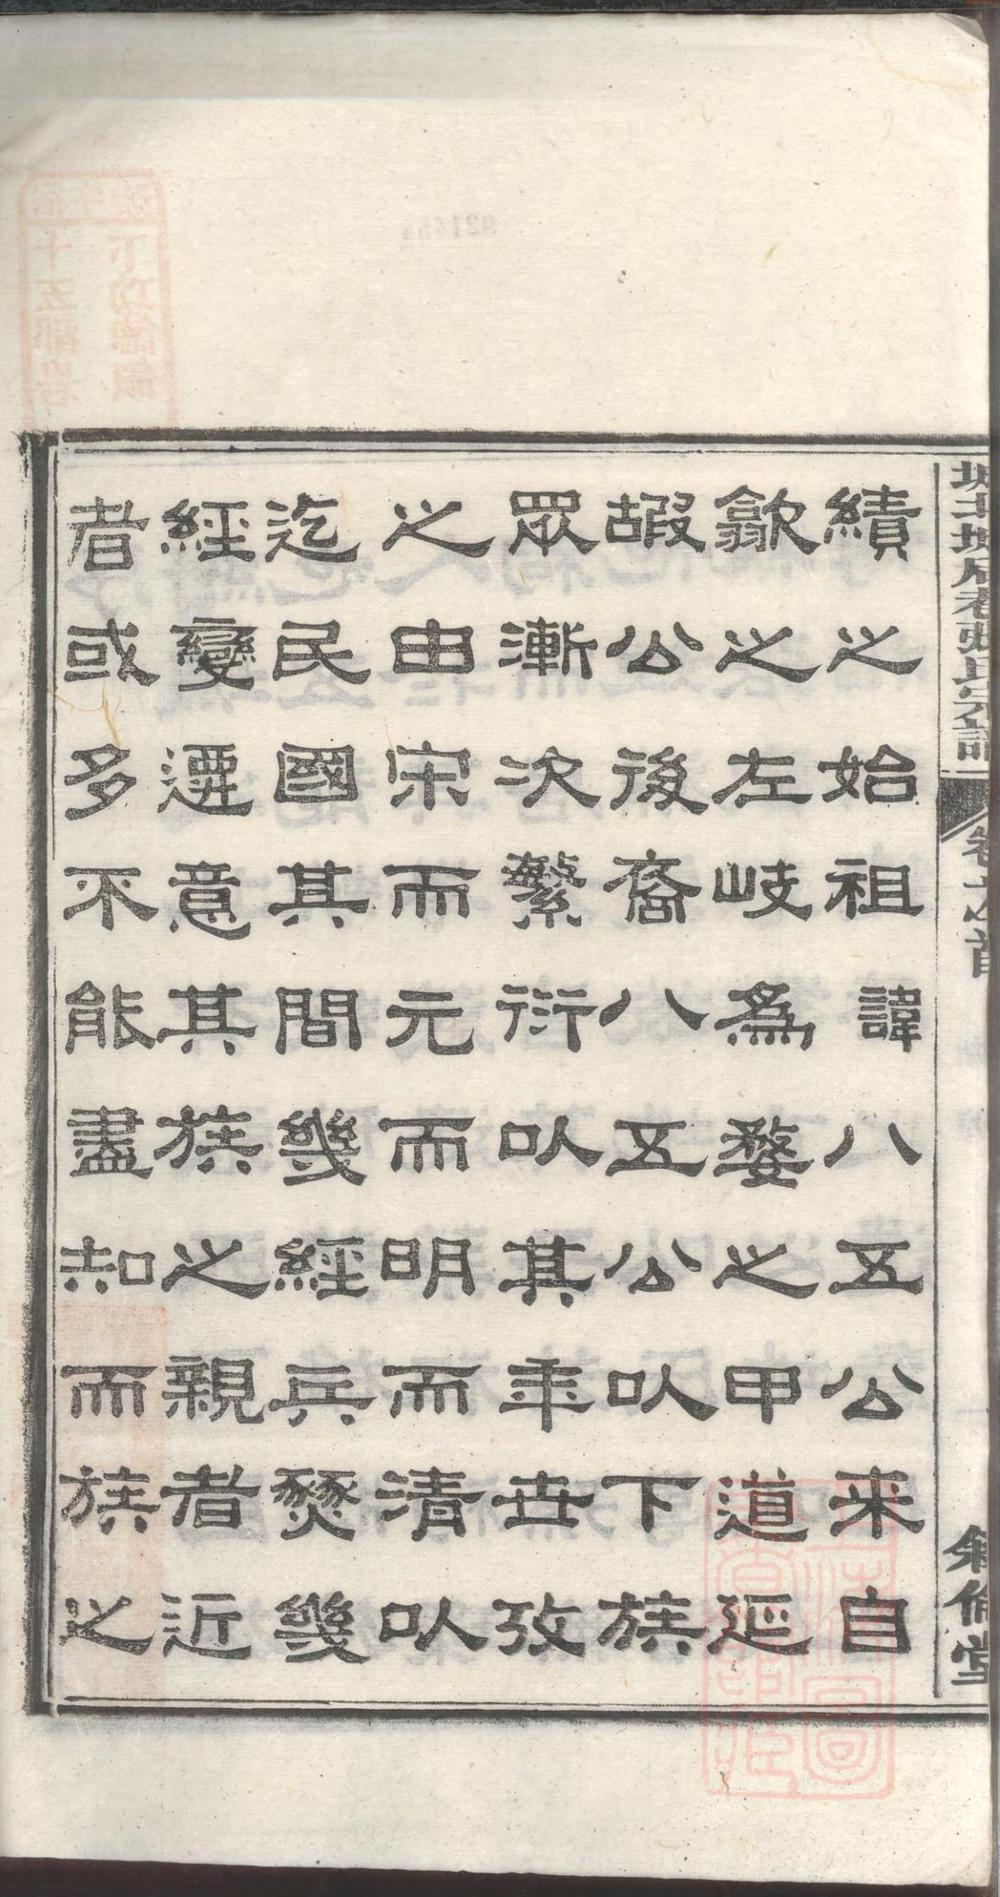 績之始祖諱八五公来自
歙之左岐為婺之甲道延
嘏公後裔八五公以下族
眾漸次繁衍以其年世攷
之由宋而元而明而清以
迄民國其間幾經兵燹幾
經變遷意其族之親者近
者或多不能盡知而族之
張氏宗譜
卷之首
敘倫堂